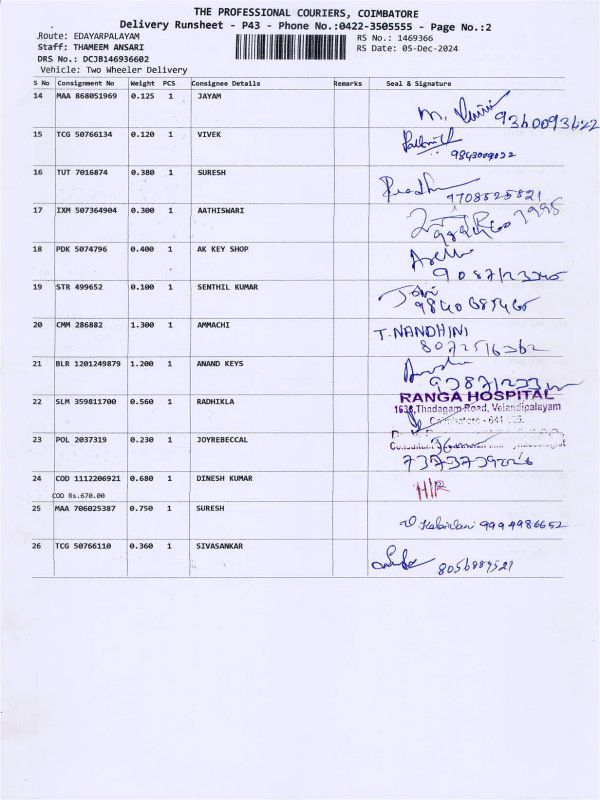 THE PROFESSIONAL COURIERS, COIMBATORE
Delivery Runsheet - P43 - Phone No.:0422-3505555 - Page No.:2
Route: EDAYARPALAYAM
RS No.: 1469366
Staff: THAMEEM ANSARI
RS Date: 05-Dec-2024
DRS No.: DCJB146936602
Vehicle: Two Wheeler Delivery
S No Consignment No Weight PCS Consignee Details Remarks Seal & Signature
14 MAA 868051969 0.125 1 JAYAM
9360093622
15 TCG 50766134 0.120 1 VIVEK
9843009022
16 TUT 7016874 0.380 1 SURESH
9708525821
17 IXM 507364904 0.300 1 AATHISWARI
18 PDK 5074796 0.400 1 AK KEY SHOP
19 STR 499652 0.100 1 SENTHIL KUMAR
20 CMM 286882 1.300 1 AMMACHI
T. NANDHINI
8072516362
21 BLR 1201249879 1.200 1 ANAND KEYS
22 SLM 359811700 0.560 1 RADHIKLA
RANGA HOSPITAL
Thadagam Road, Velandipalayam
23 POL 2037319 0.230 1 JOYREBECCAL
24 COD 1112206921 0.680 1 DINESH KUMAR
H/R
COD Rs.670.00
25 MAA 706025387 0.750 1 SURESH
9994986652
26 TCG 50766110 0.360 1 SIVASANKAR
8056889521